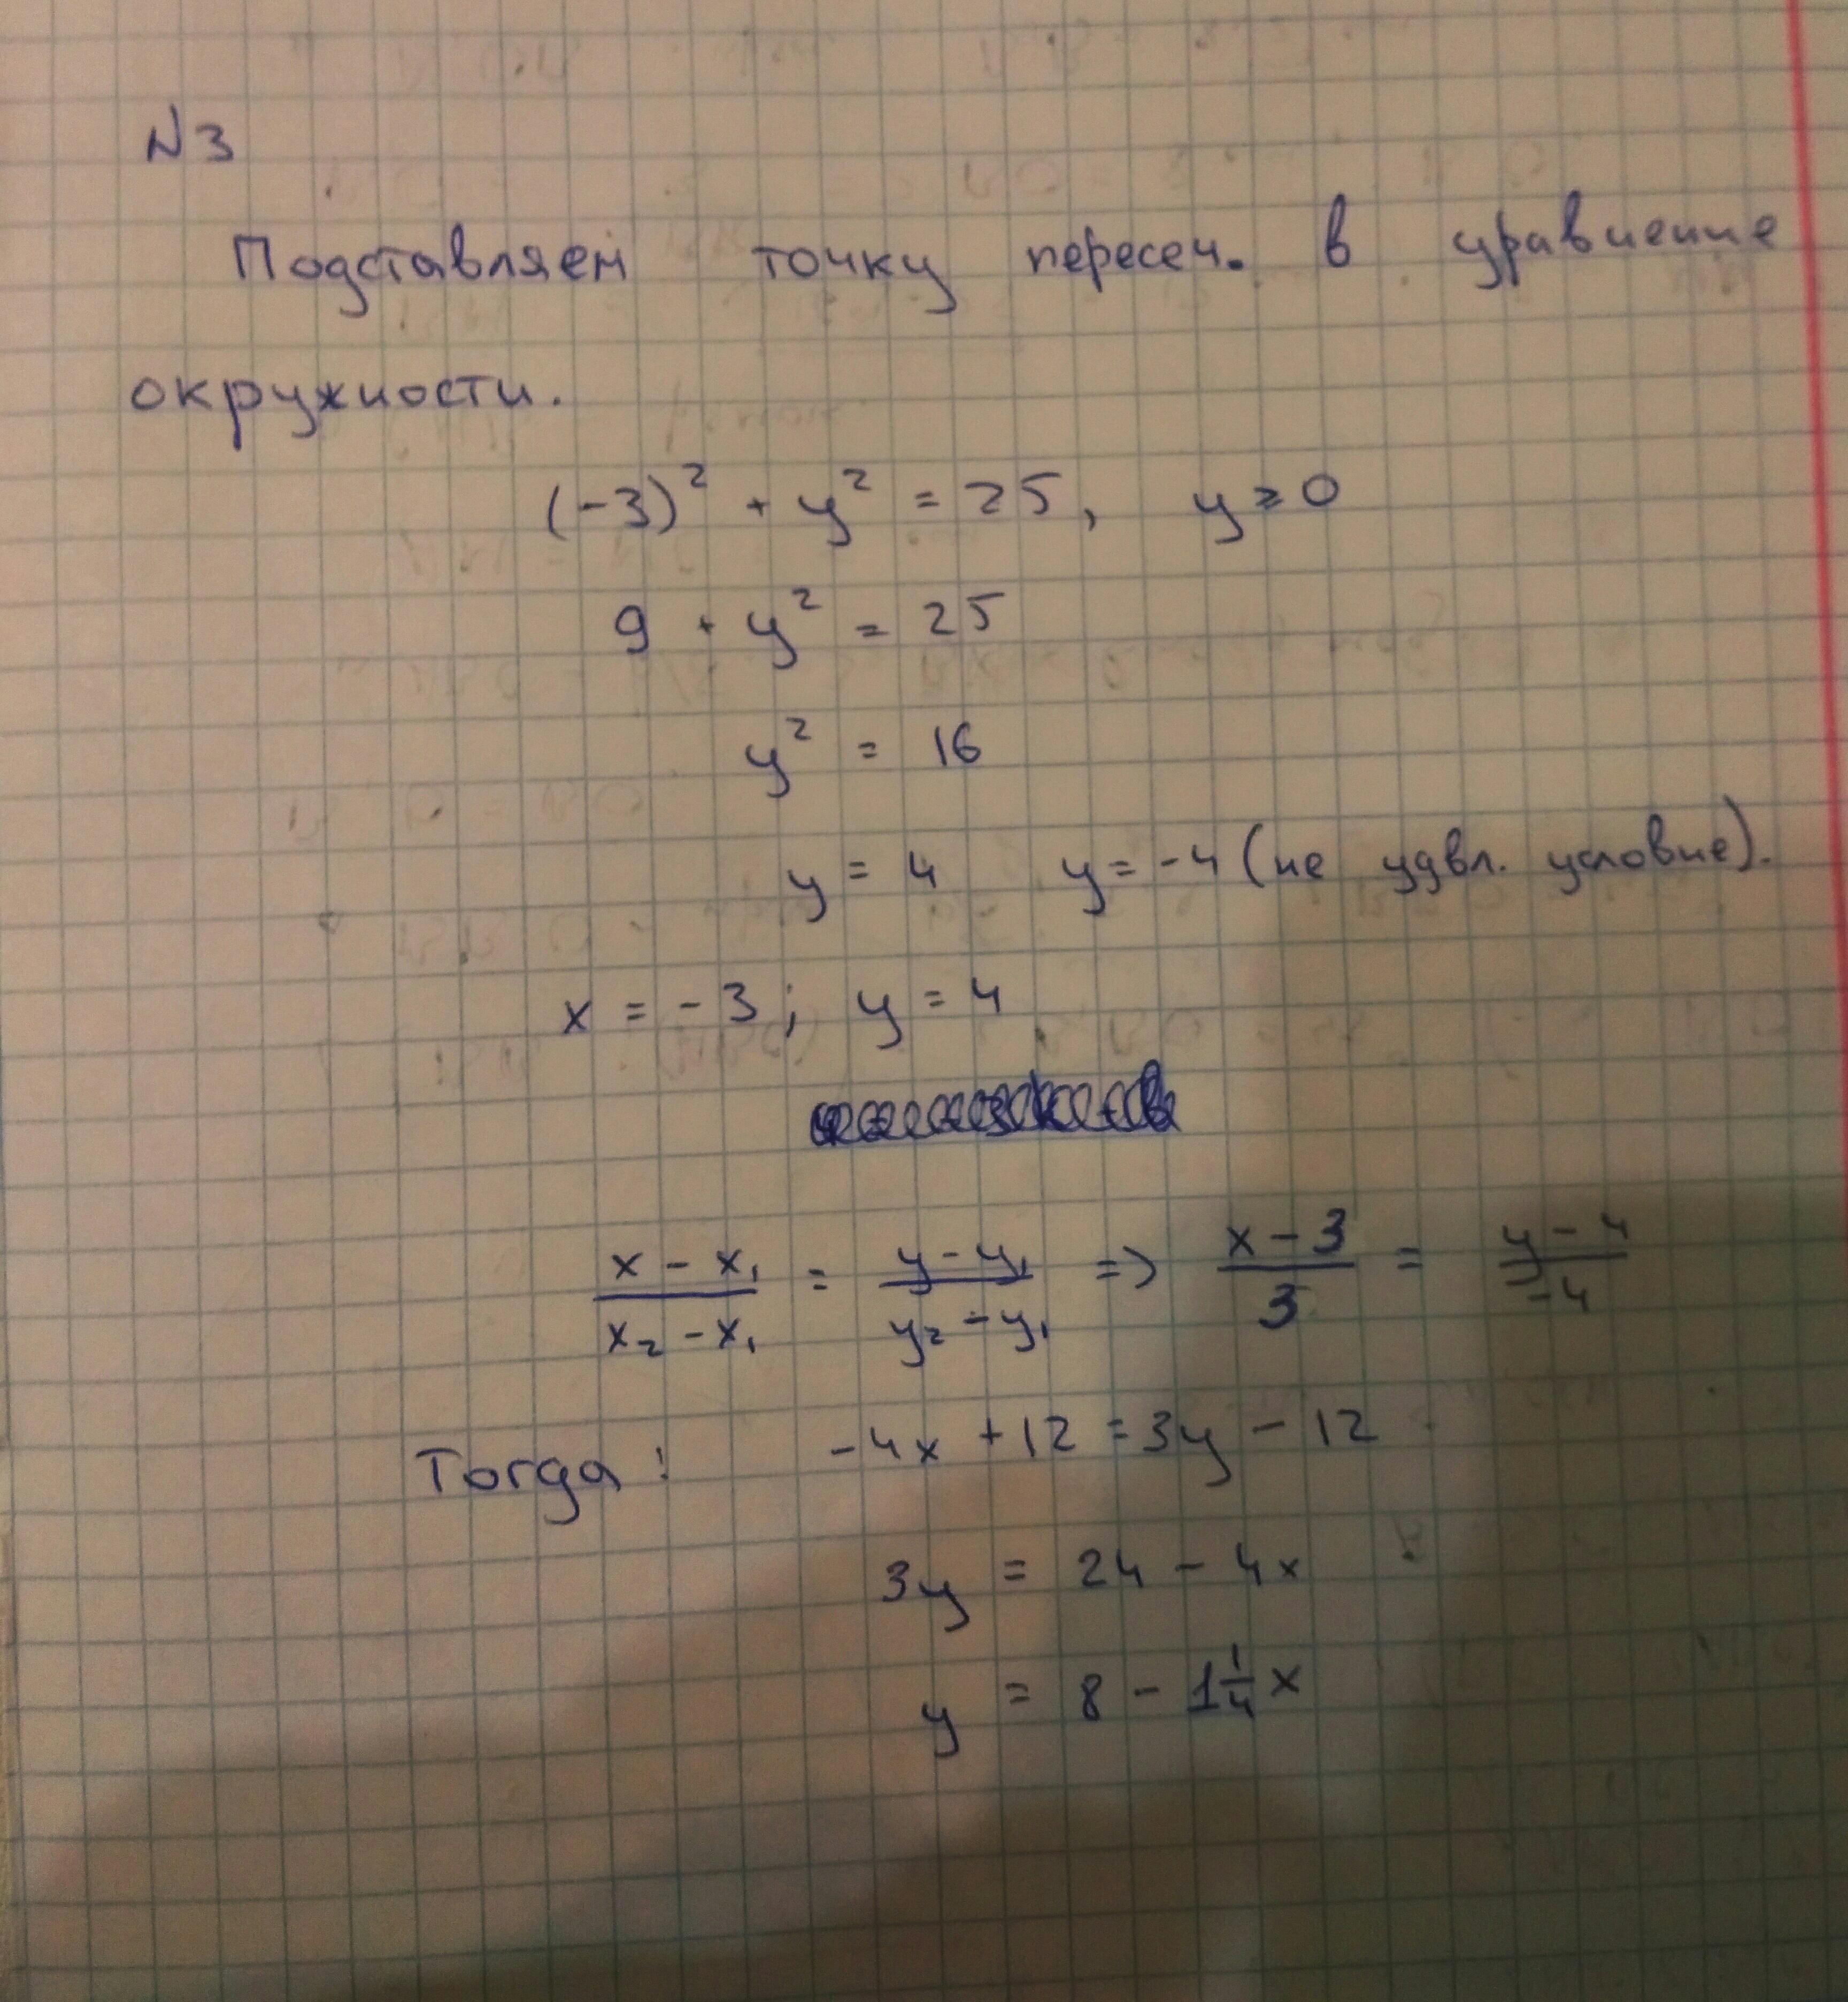 N3
Подставляем точку пересеч. в уравнение
окружности.
(-3)² + y² = 25, y ≥ 0
9 + y² = 25
y² = 16
y = 4 y = -4 (не удвл. условие).
x = -3; y = 4
(x - x₁)/(x₂ - x₁) = (y - y₁)/(y₂ - y₁) => (x - 3)/3 = (y - 4)/-4
Тогда: -4x + 12 = 3y - 12
3y = 24 - 4x
y = 8 - 1 1/4 x